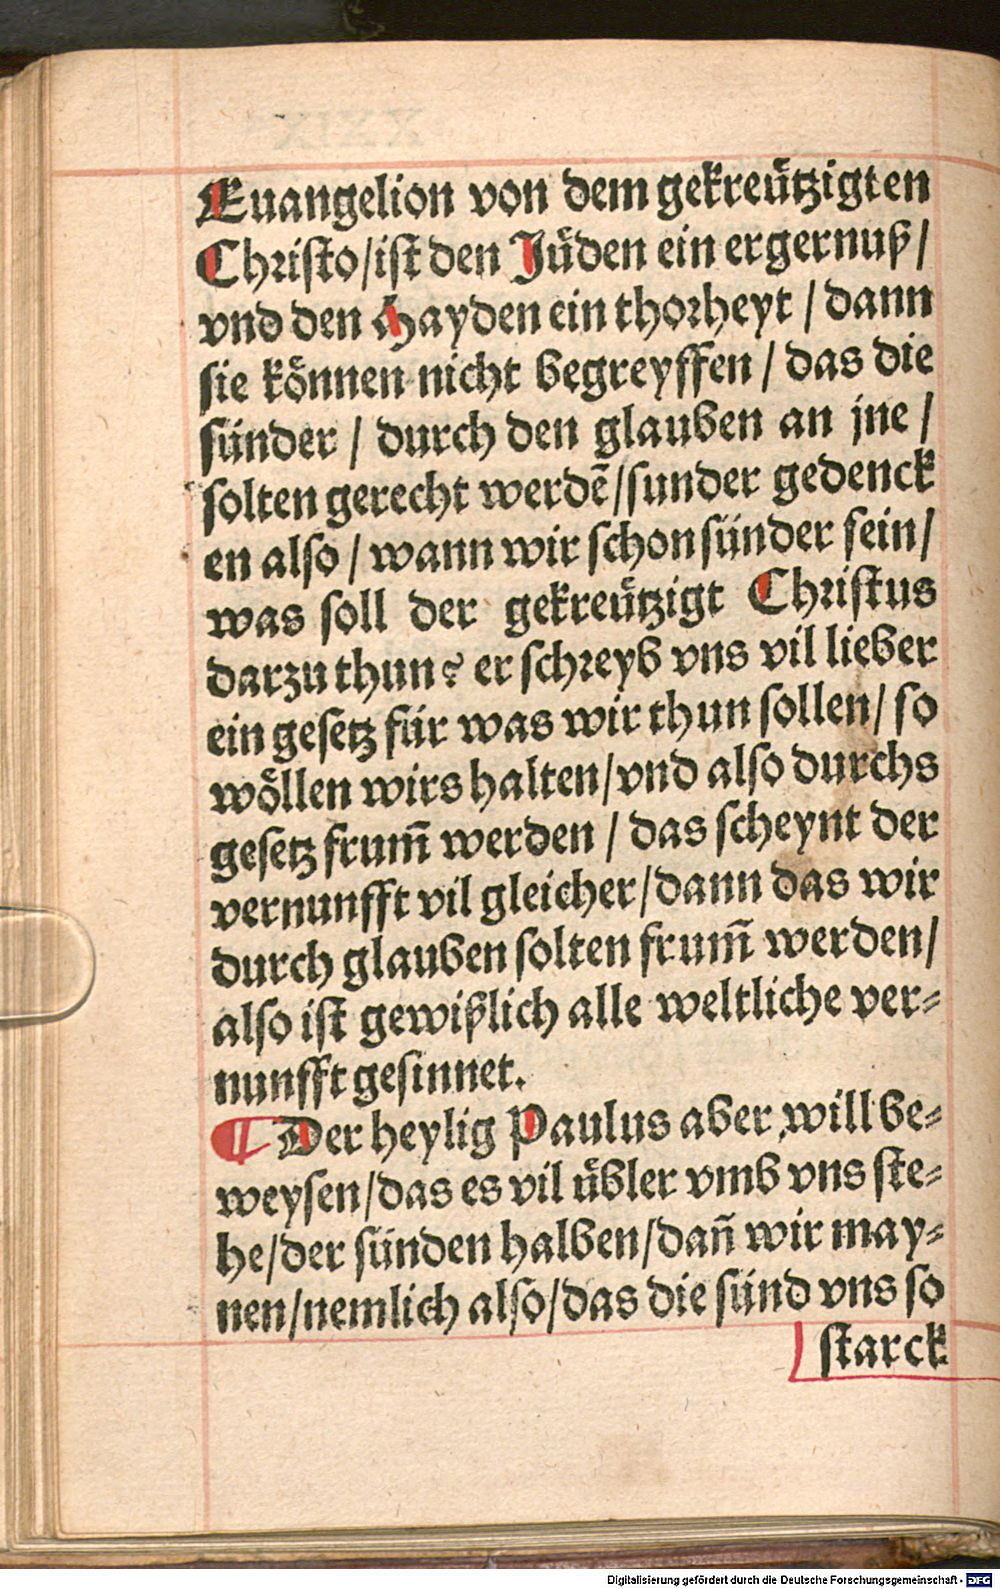 Euangelion von dem gekreützigten
Christo/ist den Jüden ein ergernuß/
vnd den Hayden ein thorheyt / dann
sie können nicht begreyffen / das die
sünder / durch den glauben an jne /
solten gerecht werdē/sunder gedenck
en also / wann wir schon sünder sein/
was soll der gekreützigt Christus
darzu thun? er schreyb vns vil lieber
ein gesetz für was wir thun sollen/ so
wöllen wirs halten/vnd also durchs
gesetz frum̄ werden / das scheynt der
vernunfft vil gleicher/dann das wir
durch glauben solten frum̄ werden/
also ist gewißlich alle weltliche ver⸗
nunfft gesinnet.
¶ Der heylig Paulus aber will be⸗
weysen/das es vil übler vmb vns ste⸗
he/der sünden halben/dan̄ wir may⸗
nen/nemlich also/das die sünd vns so
starck
Digitalisierung gefördert durch die Deutsche Forschungsgemeinschaft - DFG